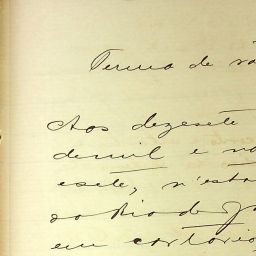 Termo de
Aos dezesete
de mil e
esete, n'esta
do Rio de
em cartorio